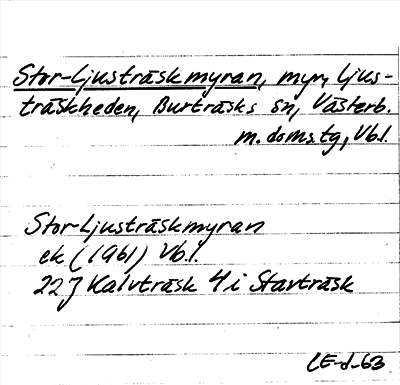 Stor-Ljusträskmyran, myr, Ljus-
träskheden, Burträsks sn, Västerb.
m. doms.tg, Vbl.
Stor-Ljusträskmyran
ek (1961) Vb.l.
22 J Kalvträsk 4 i Stavträsk
LE-d-63